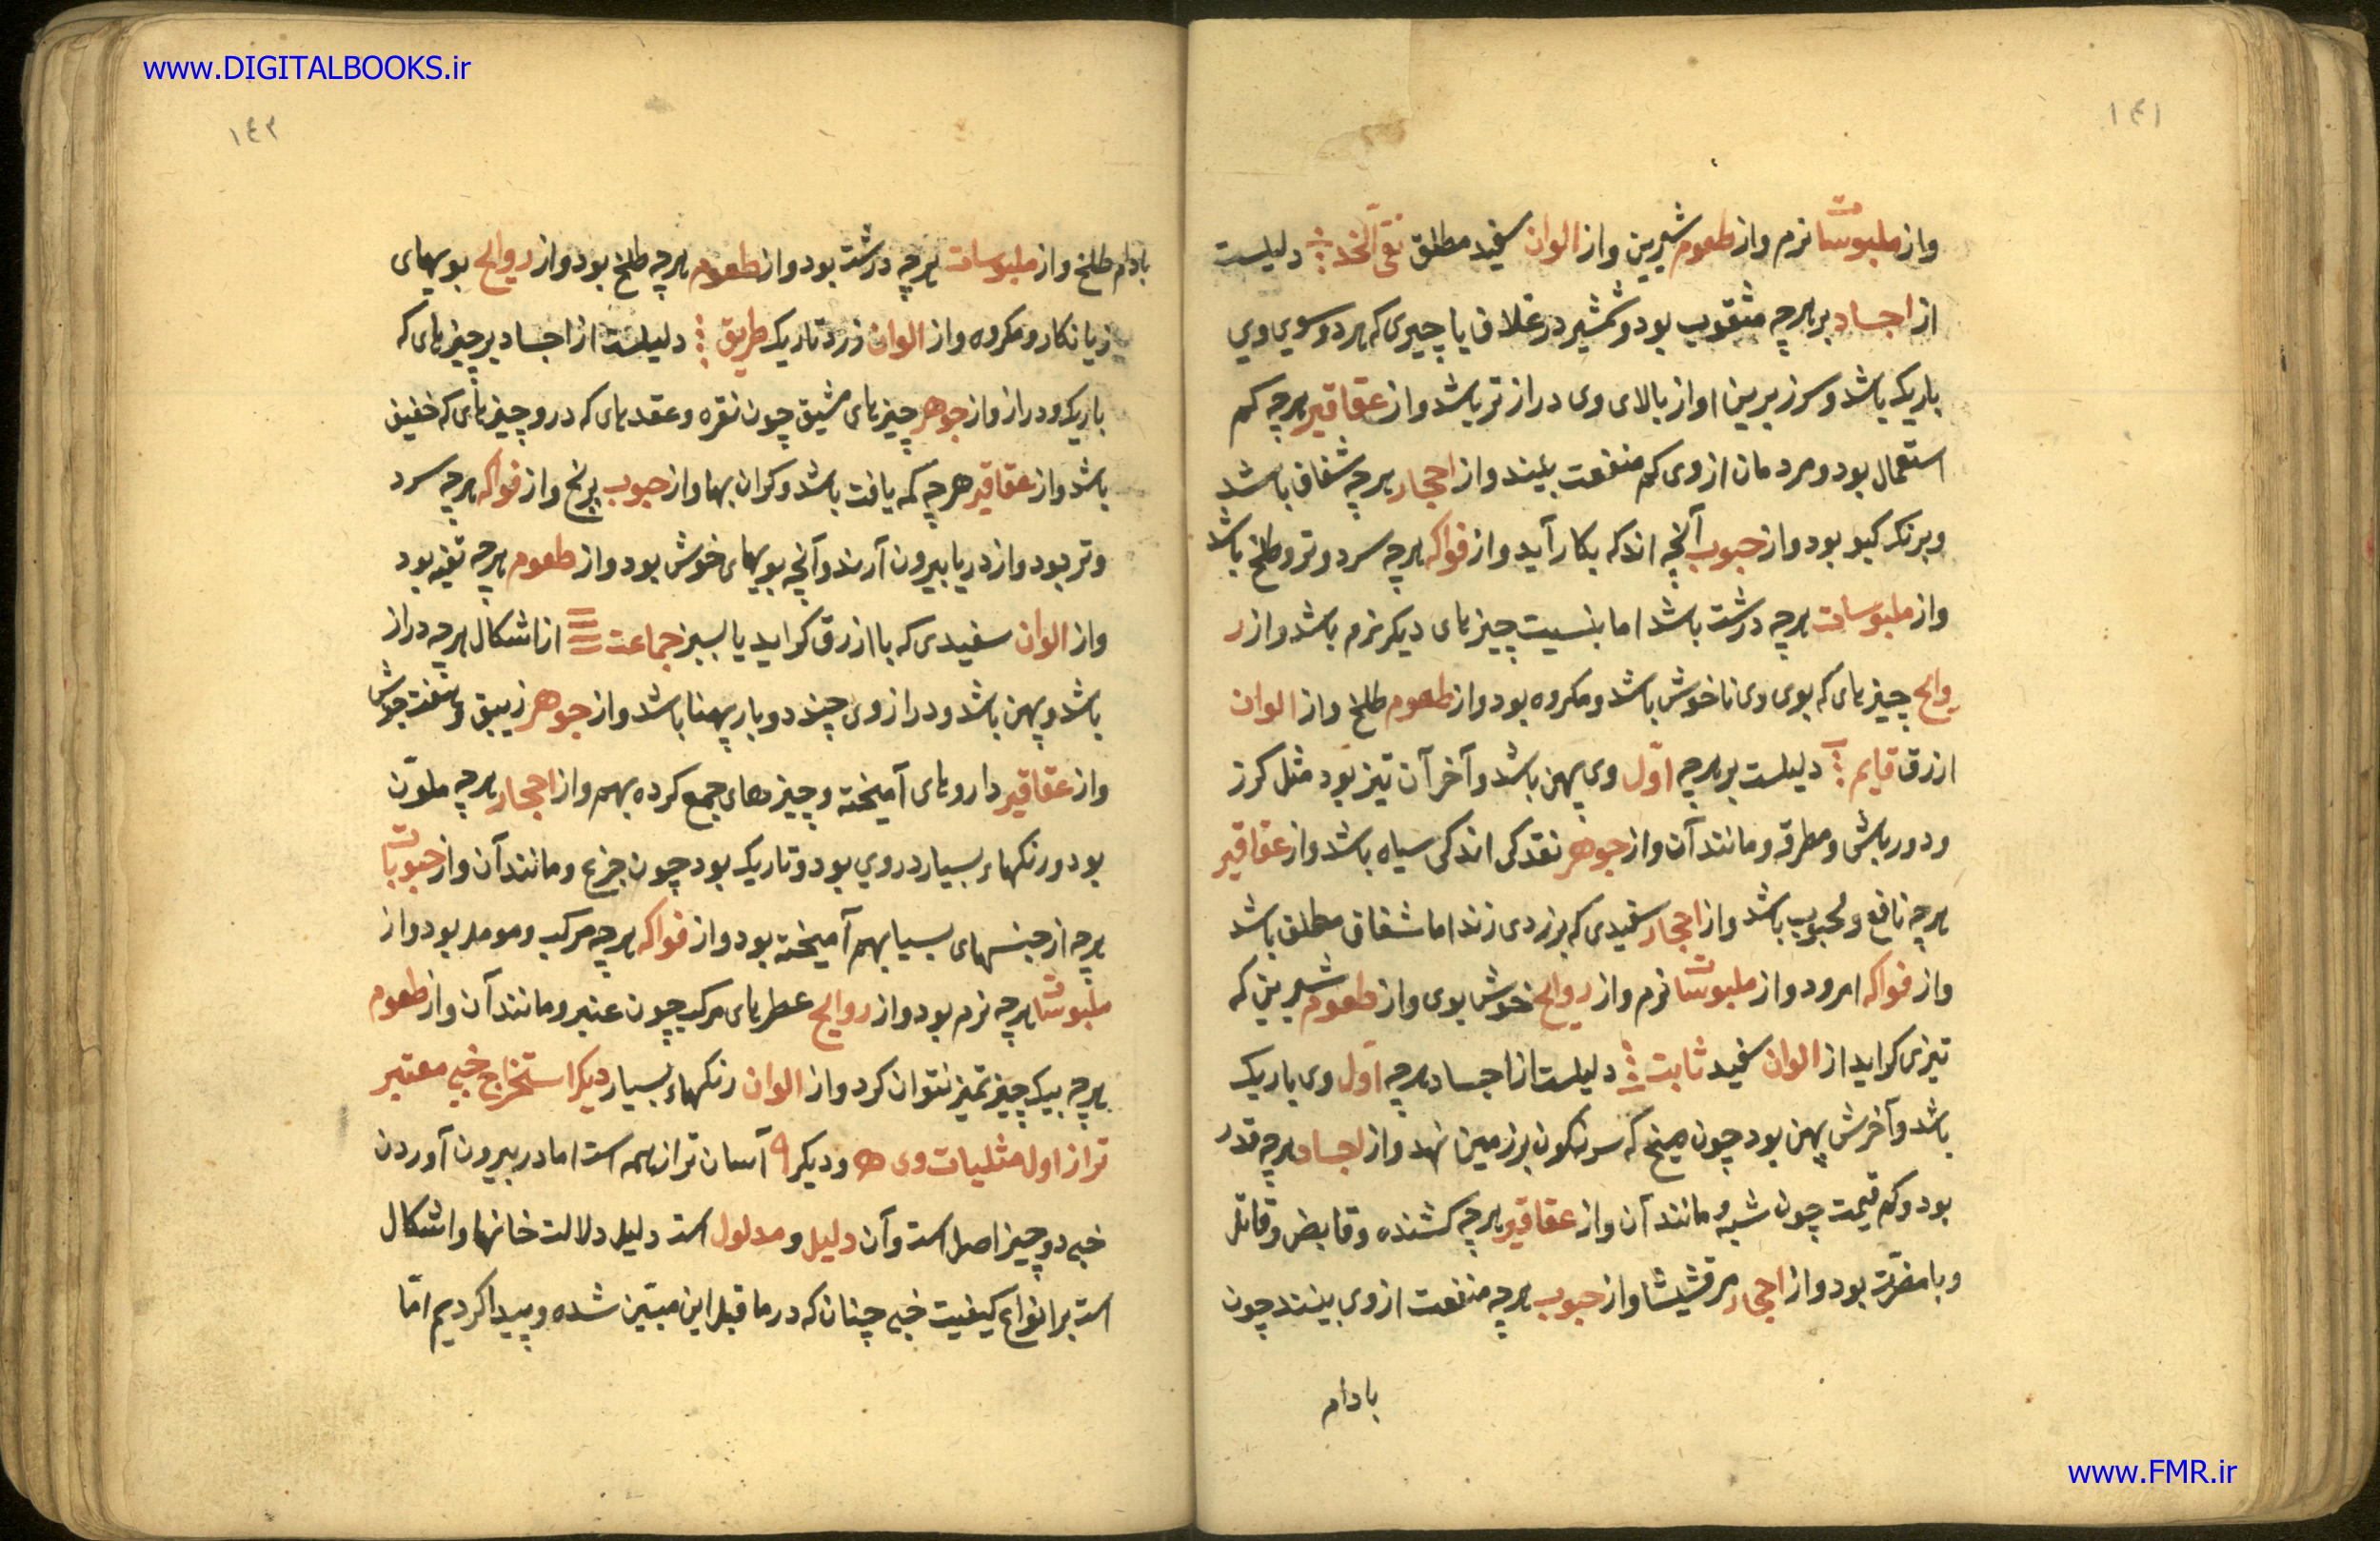 www.DIGITALBOOKS.ir
١٤١
واز ملبوسات نرم واز طعوم شیرین واز الوان سفید مطلق نقی الخد دلیلست
از اجساد بر هرچه مثقوب بود و شمشیر در غلاف یا چیزی که هر دو سوی وی
باریک باشد و سر زیرین او از بالای وی دراز تر باشد واز عقاقیر هرچه کم
استعمال بود و مردمان از وی کم منفعت بینند واز احجار هرچه شفاف باشد
وبرنک کبو بود واز حبوب آنچه اندکه بکار آید واز فواکه هرچه سرد وتر وطلخ باشد
واز ملبوسات هرچه درشت باشد اما بنسبت چیزهای دیکر نرم باشد واز ر
روایح چیزهای که بوی وی ناخوش باشد ومکروه بود واز طعوم طلخ واز الوان
ازرق قایم دلیلست بر هرچه اول وی پهن باشد وآخر آن تیز بود مثل کرز
ودورباش ومطرقه ومانند آن واز جوهر نقد کی اندکی سیاه باشد واز عقاقیر
هرچه نافع ومحبوب باشد واز احجار سفیدی که بزردی زند اما شفاف مطلق باشد
واز فواکه امرود واز ملبوسات نرم واز روایح خوش بوی واز طعوم شیرین که
تیزی کراید از الوان سفید ثابت دلیلست از اجساد هرچه اول وی باریک
باشد وآخرش پهن بود چون میخ که سرنکون بر زمین نهد واز اجساد هرچه قدر
بود وکم قیمت چون شبه ومانند آن واز عقاقیر هرچه کشنده وقابض وقاتل
وبامضرت بود واز احجار مرقشیشا واز حبوب هرچه منفعت از وی بینند چون
بادام
١٤٢
بادام طلخ واز ملبوسات هرچه درشت بود واز طعوم هرچه طلخ بود واز روایح بویهای
زیانکار ومکروه واز الوان زرد تاریک طریق دلیلست از اجساد بر چیزهای که
باریک ودراز واز جوهر چیزهای مشبق چون نقره وعقدهای که درو چیزهای که خفیف
باشد واز عقاقیر هرچه کم یافت باشد وکران بها واز حبوب برنج واز فواکه هرچه سرد
وتر بود واز دریا بیرون آرند وآنچه بویهای خوش بود واز طعوم هرچه تفه بود
واز الوان سفیدی که با ازرق کراید یا بسبز جماعت از اشکال هرچه دراز
باشد وپهن باشد ودرازوی چند دوبار پهنا باشد واز جوهر زیبق وهفت جوش
واز عقاقیر داروهای آمیخته وچیزهای جمع کرده بهم واز احجار هرچه ملوّن
بود ورنکهاء بسیار در وی بود وتاریک بود چون جزع ومانند آن واز حبوبات
هرچه از جنسهای بسیا بهم آمیخته بود واز فواکه هرچه مرکب ومومد بود واز
ملبوسات هرچه نرم بود واز روایح عطرهای مرکب چون عنبر ومانند آن واز طعوم
هرچه بیک چیز تمیز نتوان کرد واز الوان رنکهاء بسیار دیکر استخراج خبی معتبر
تر از اول مثلیات وی ه ودیکر ٩ آسان تر از همه است اما در بیرون آوردن
خبی دو چیز اصل است وآن دلیل ومدلول است دلیل دلالت خانها واشکال
است بر انواع کیفیت خبی چنان که در ما قبل این مبیّن شده وپیدا کردیم امّا
www.FMR.ir